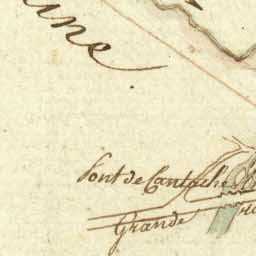 ine
Pont de Cantache
Grande